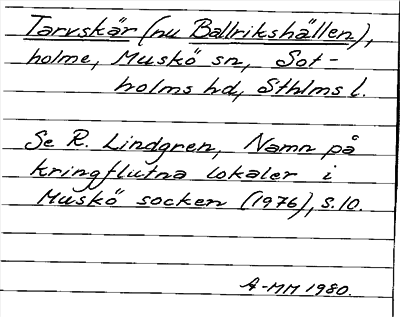 Tarvskär (nu Ballrikshällen),
holme, Muskö sn, Sot-
holms hd, Sthlms l.
Se R. Lindgren, Namn på
kringflutna lokaler i
Muskö socken (1976), s. 10.
A-MM 1980.